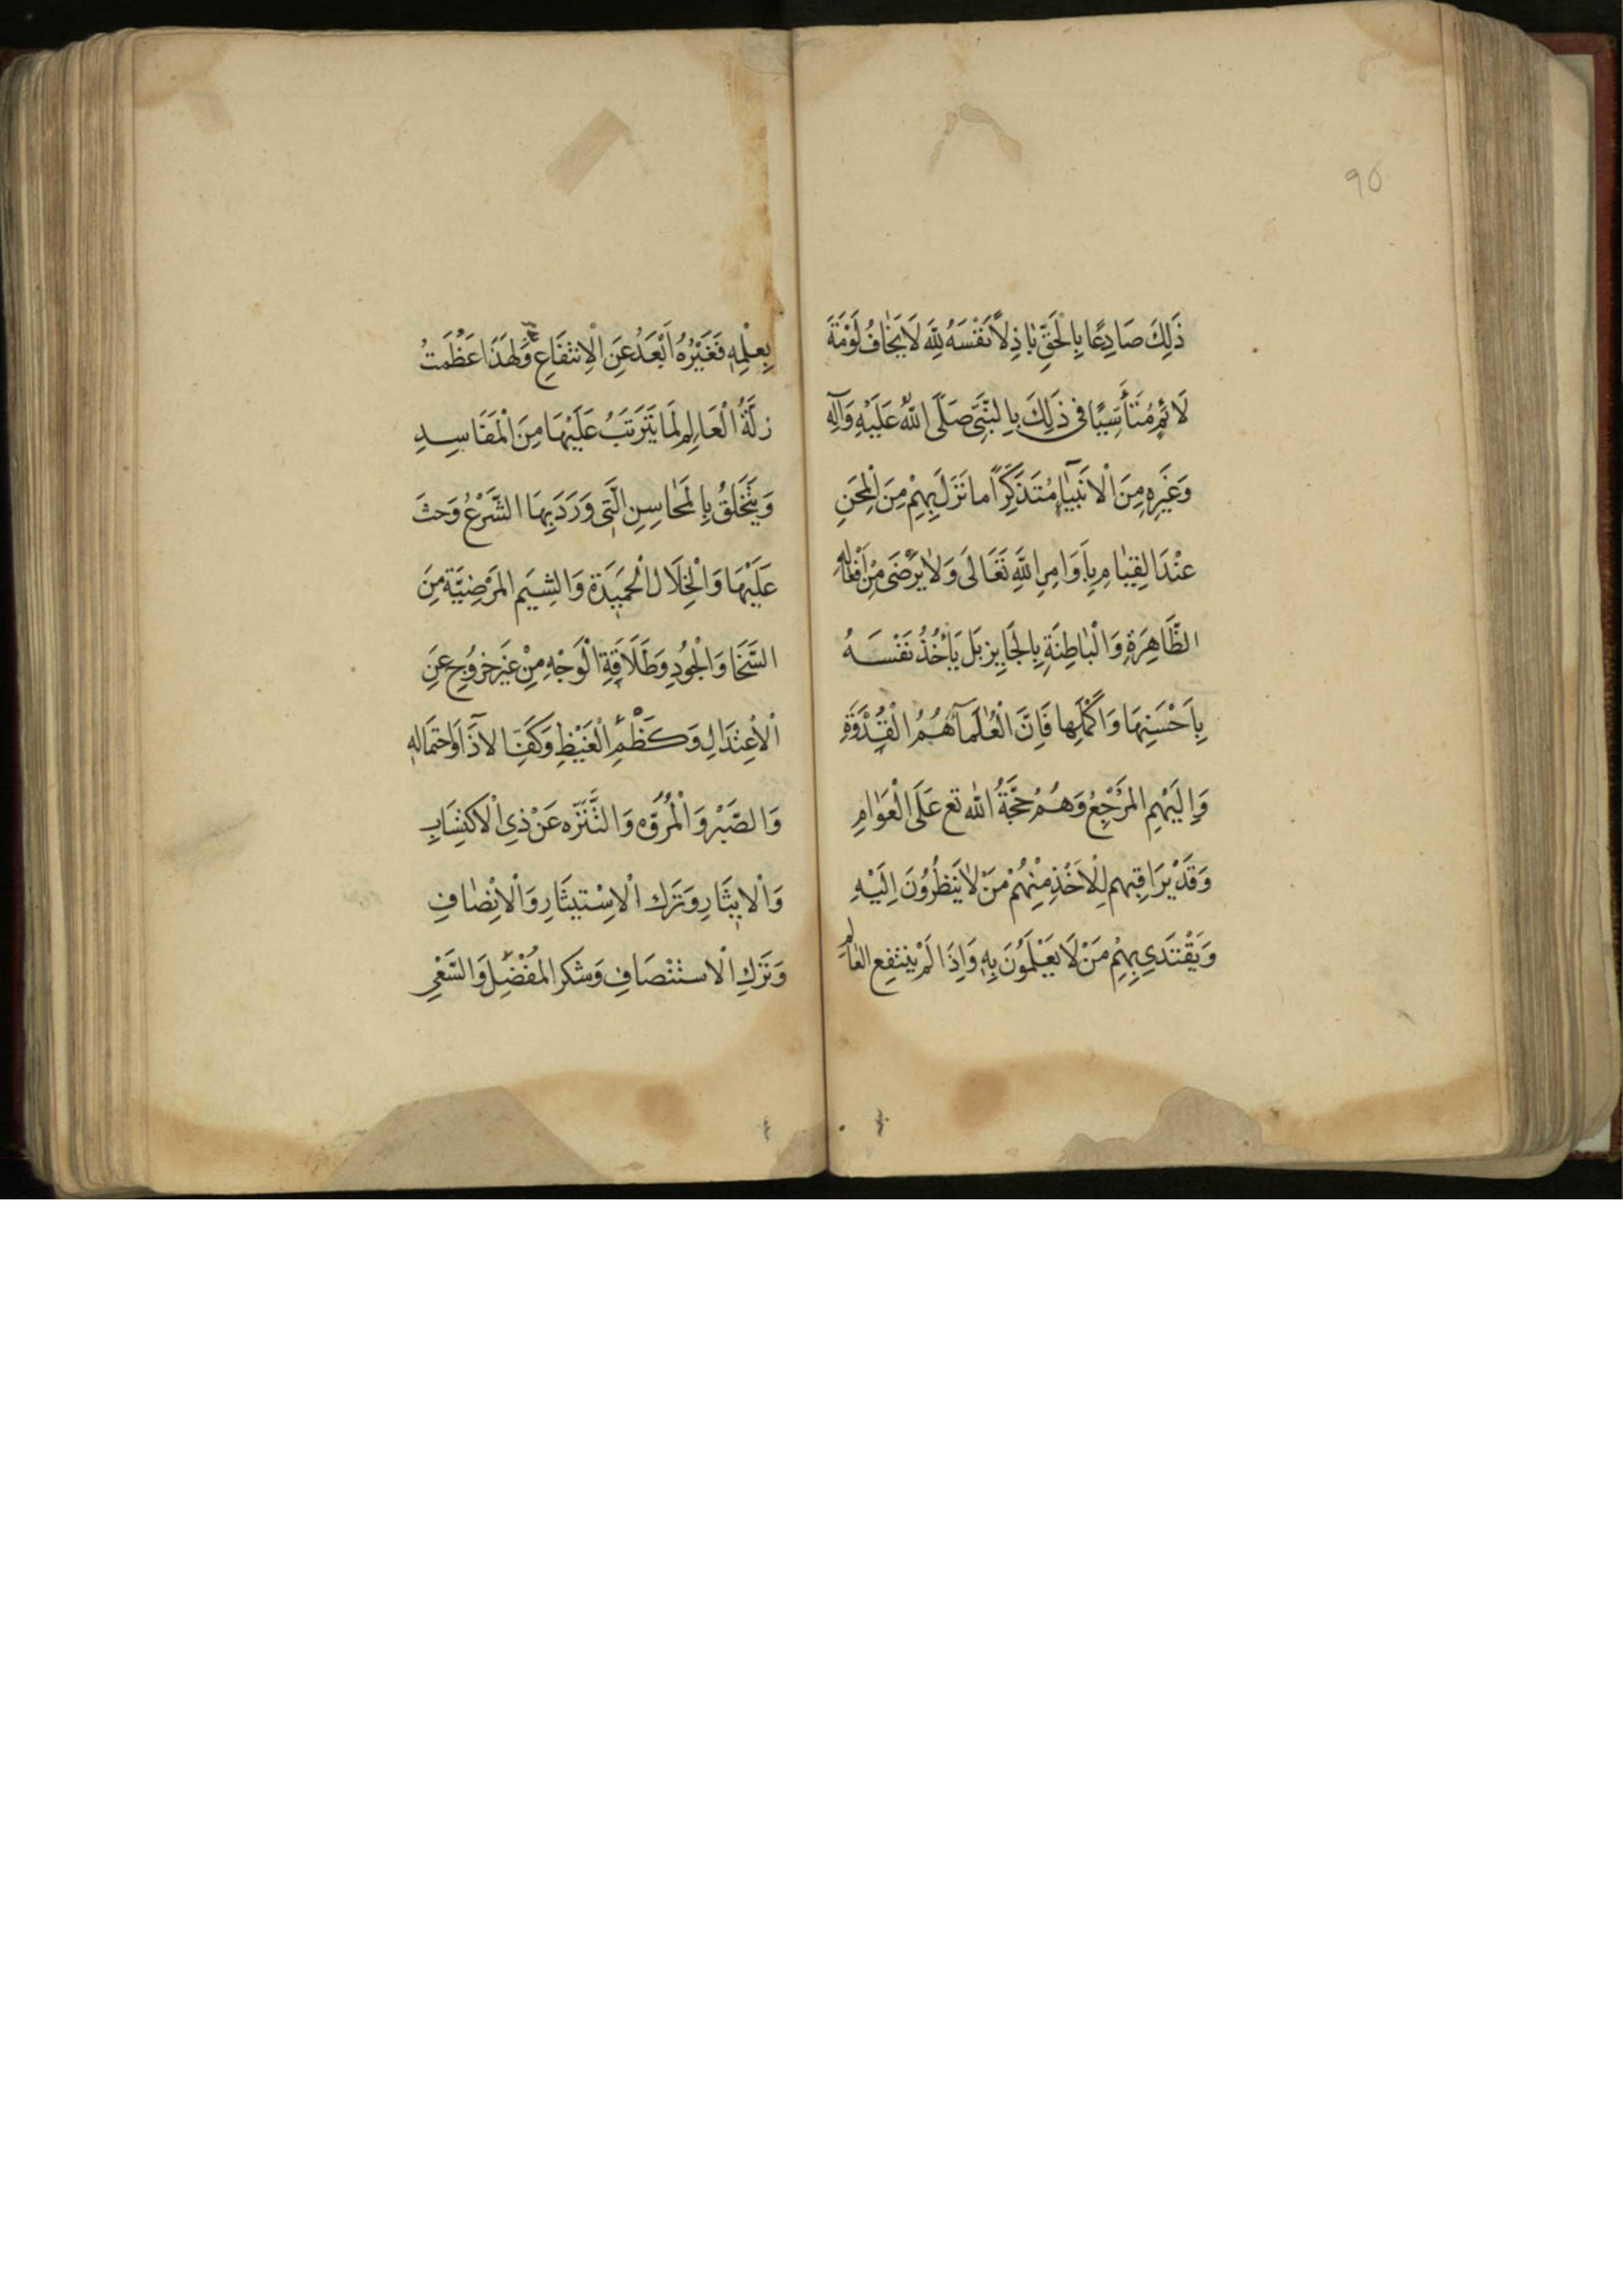 95
ذَلِكَ صَادِعًا بِالْحَقِّ بَاذِلاً نَفْسَهُ لِلَّهِ لَا يَخَافُ لَوْمَةَ
لَائِمٍ مُتَأَسِّيًا فى ذَلِكَ بِالنَّبِيِّ صَلَّى اللهُ عَلَيْهِ وَآلِهِ
وَغَيْرِهِ مِنَ الْاَنْبِيَاءِ مُتَذَكِّرًا ما نَزَلَ بِهِمْ مِنَ الْمِحَنِ
عِنْدَ الْقِيَامِ بِاَوَامِرِ اللَّهِ تَعَالَى وَلَا يَرْضَى مِنْ اَفْعَالِهِ
الظَّاهِرَةِ وَالْبَاطِنَةِ بِالْجَايِزِ بَلْ يَأْخُذُ نَفْسَهُ
بِاَحْسَنِهَا وَاَكْمَلِها فَاِنَّ الْعُلَمَآءَ هُمُ الْقُدْوَةِ
وَاِلَيْهِمِ الْمَرْجِعُ وَهُمْ حُجَّةُ الله تع عَلَى الْعَوَامِ
وَقَدْ يُرَاقِبهم لِلْاَخْذِ مِنْهُمْ مَنْ لَا يَنظُرُونَ اِلَيْهِ
وَيَقْتَدِي بِهِمْ مَنْ لَا يَعْلَمُونَ بِهِ وَاِذَا لَمْ يَنْتَفِعِ الْعَالِمُ
بِعِلْمِهِ فَغَيْرُهُ اَبْعَدُ عَنِ الْاِنْتِفَاعِ وَلِهَذَا عَظُمَتْ
زلَّةُ الْعَالِمِ لَمَا يَتَرَتَّبُ عَلَيْهَا مِنَ الْمَفَاسِدِ
وَيَتَخَلَّقُ بِالْمَحَاسِنِ الَّتِى وَرَدَ بِهَا الشَّرْعُ وَحَثَّ
عَلَيْهَا وَالْخِلَالِ الْحَمِيدَةِ وَالشِيَمِ الْمَرْضِيَّةِ مِنَ
السَّخَا وَالْجُودِ وَطَلَاقَةِ الْوَجْهِ مِنْ غَيْرِ خرُوجٍ عَنِ
الْاِعْتِدَالِ وَكَظْمِ الْغَيْظِ وَكَفِّ الاذَآ وَاحْتِمَالِهِ
وَالصَّبْرِ وَالْمُرُوَّه وَالتَّنَزّه عَنْ ذِي الْاكتِسَابِ
وَالْايثَارِ وَتَرْكِ الْاِسْتيثَارِ وَالْاِنْصَافِ
وَتَرْكِ الْاستِنْصَافِ وَشكر المُفْضِلِ وَالسَّعْيِ